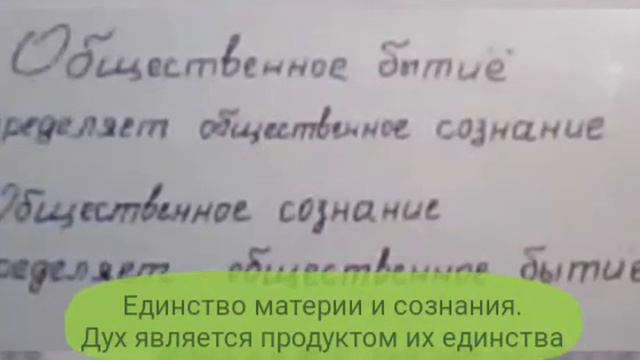 Общественное бытиё
ределяет общественное сознание
Общественное сознание
ределяет общественное бытиё
Единство материи и сознания.
Дух является продуктом их единства